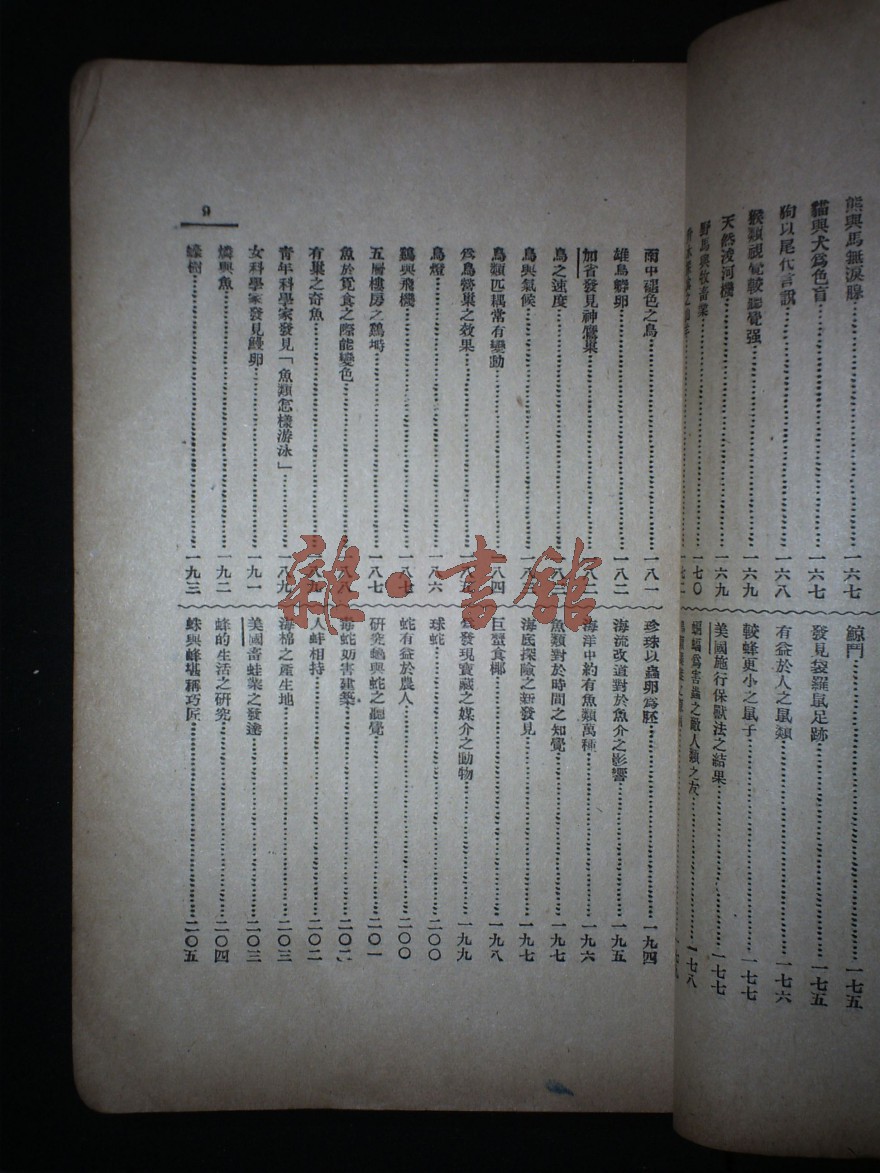 熊與馬無淚腺……一六七
貓與犬爲色盲……一六七
狗以尾代言語……一六八
猴類視覺較聽覺强……一六九
天然浚河機……一六九
野馬與牧畜業……一七〇
鯨鬥……一七五
發見袋羅鼠足跡……一七五
有益於人之鼠類……一七六
較蜂更小之鼠子……一七七
美國施行保獸法之結果……一七七
蝙蝠爲害蟲之敵人類之友……一七八
雨中褪色之鳥……一八一
雄鳥孵卵……一八二
加省發見神鷹巢……一八二
鳥之速度……一八三
鳥與氣候……一八三
鳥類匹耦常有變動……一八四
爲鳥營巢之效果……一八五
鳥燈……一八六
鷄與飛機……一八七
五層樓房之鷄塒……一八七
魚於覓食之際能變色……一八八
有巢之奇魚……一八九
靑年科學家發見「魚類怎樣游泳」……一八九
女科學家發見鰻卵……一九一
燐與魚……一九二
蠔樹……一九三
珍珠以蟲卵爲胚……一九四
海流改道對於魚介之影響……一九五
海洋中約有魚類萬種……一九六
魚類對於時間之知覺……一九七
海底探險之新發見……一九七
巨蟹食椰……一九八
爲發現寶藏之媒介之動物……一九九
球蛇……二〇〇
蛇有益於農人……二〇〇
研究龜與蛇之聽覺……二〇一
毒蛇妨害建築……二〇二
人蚌相持……二〇二
海棉之產生地……二〇三
美國畜蛙業之發達……二〇三
蜂的生活之研究……二〇四
蛛與蜂堪稱巧匠……二〇五
9
雜·書館